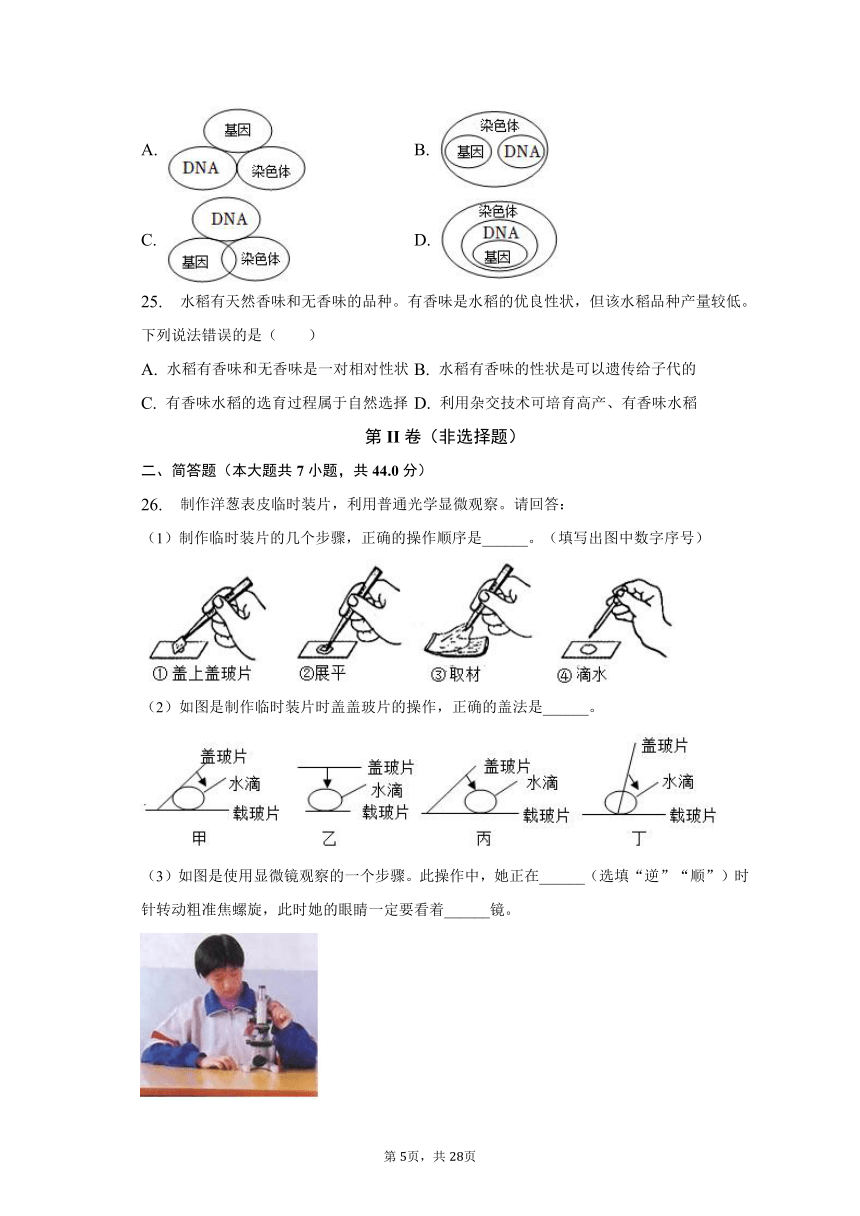 A. 基因 DNA 染色体 B. 染色体 基因 DNA
C. DNA 基因 染色体 D. 染色体 DNA 基因
25. 水稻有天然香味和无香味的品种。有香味是水稻的优良性状，但该水稻品种产量较低。
下列说法错误的是（  ）
A. 水稻有香味和无香味是一对相对性状 B. 水稻有香味的性状是可以遗传给子代的
C. 有香味水稻的选育过程属于自然选择 D. 利用杂交技术可培育高产、有香味水稻
第 II 卷（非选择题）
二、简答题（本大题共 7 小题，共 44.0 分）
26. 制作洋葱表皮临时装片，利用普通光学显微观察。请回答：
（1）制作临时装片的几个步骤，正确的操作顺序是______。（填写出图中数字序号）
①盖上盖玻片 ②展平 ③取材 ④滴水
（2）如图是制作临时装片时盖盖玻片的操作，正确的盖法是______。
盖玻片 水滴 载玻片 盖玻片 水滴 载玻片 盖玻片 水滴 载玻片 盖玻片 水滴 载玻片
甲 乙 丙 丁
（3）如图是使用显微镜观察的一个步骤。此操作中，她正在______（选填“逆”“顺”）时
针转动粗准焦螺旋，此时她的眼睛一定要看着______镜。
第 5页，共 28页